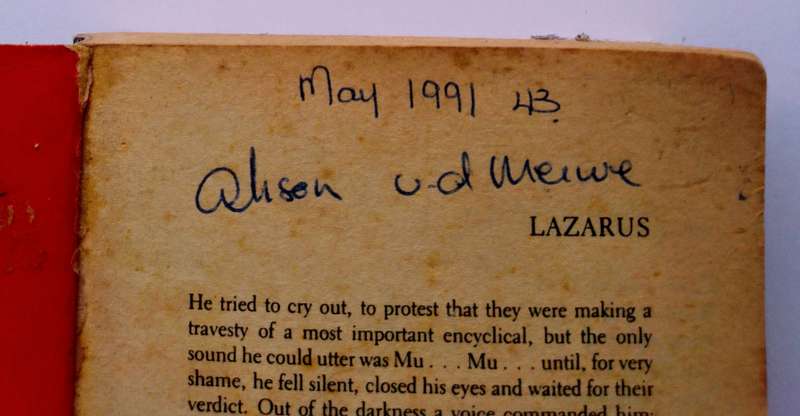 May 1991 43
Alison v.d Merwe
LAZARUS
He tried to cry out, to protest that they were making a
travesty of a most important encyclical, but the only
sound he could utter was Mu . . . Mu . . . until, for very
shame, he fell silent, closed his eyes and waited for their
verdict. Out of the darkness a voice commanded him